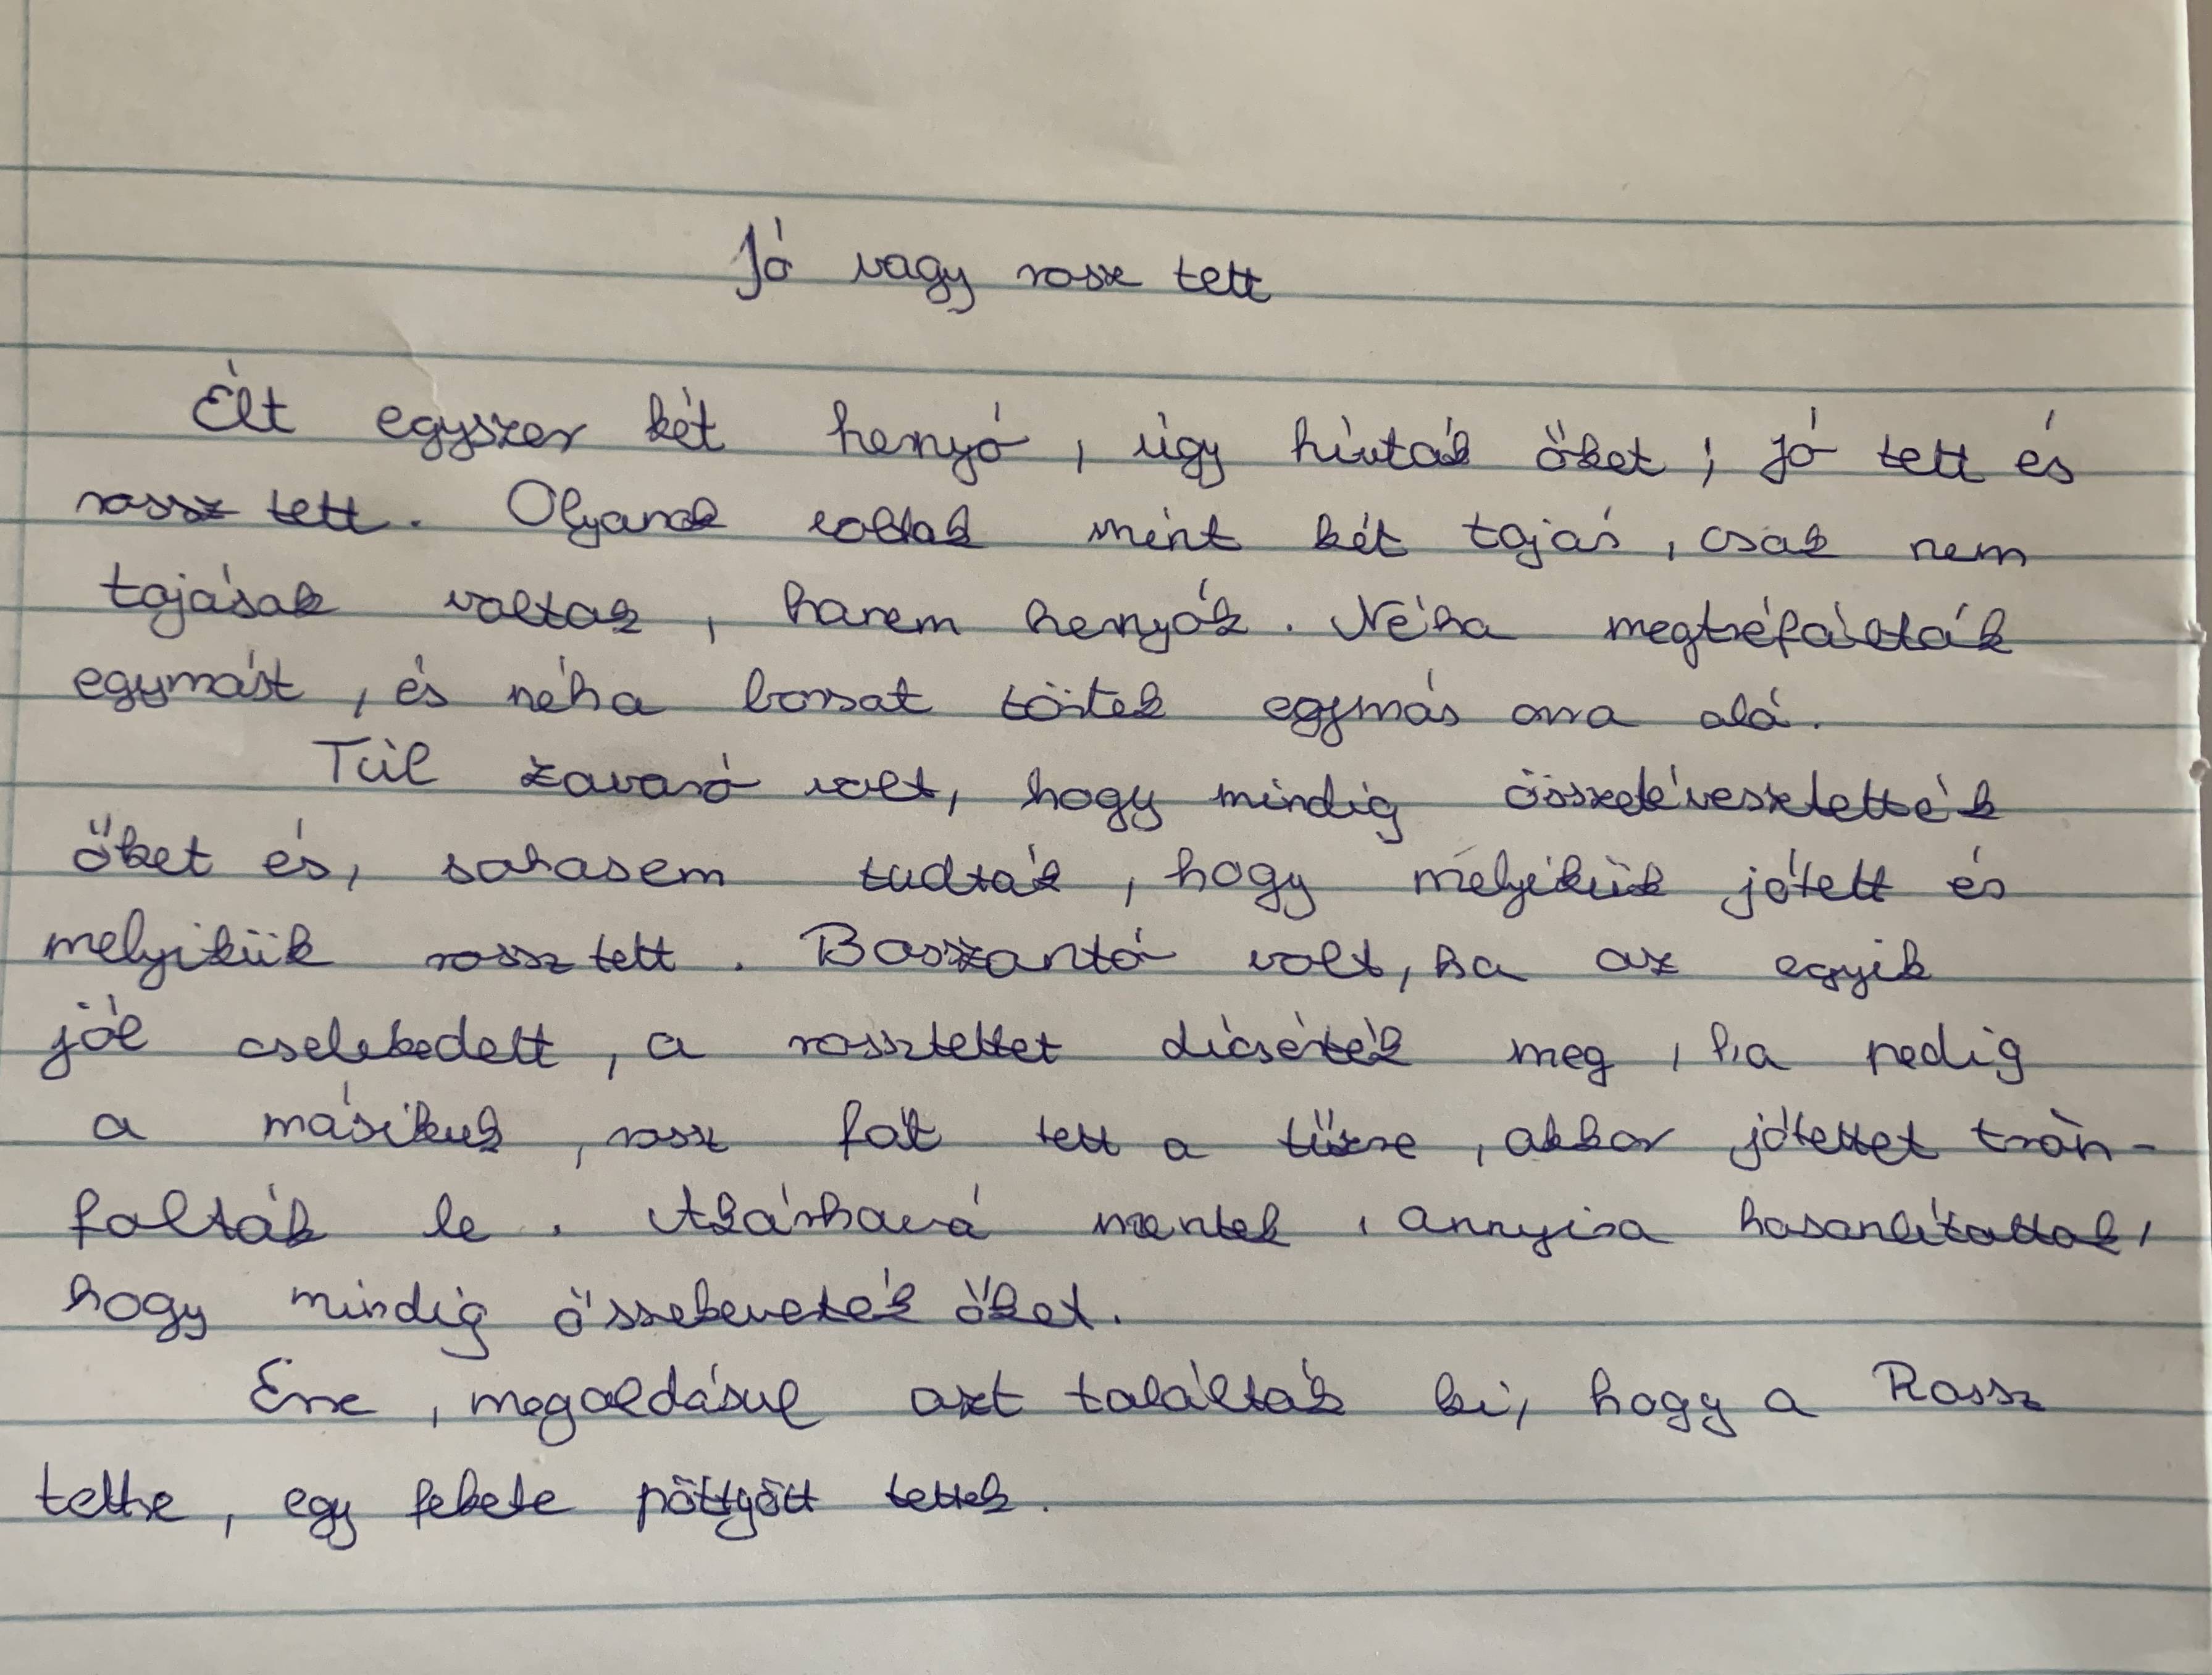 Jó vagy rossz tett
Élt egyszer két hernyó, úgy hívták őket; jó tett és
rossz tett. Olyanok voltak mint két tojás, csak nem
tojások voltak, hanem hernyók. Néha megtréfálták
egymást, és néha borsot törtek egymás orra alá.
Túl zavaró volt, hogy mindig összetévesztették
őket és, sohasem tudták, hogy melyikük jótett és
melyikük rossztett. Bosszantó volt, ha az egyik
jól cselekedett, a rossztettet dícsérték meg, ha pedig
a másikuk, rossz fát tett a tűzre, akkor jótettet tràn-
folták le. Akárhová mentek, annyira hasonlítottak,
hogy mindig össekeverték őket.
Erre, megoldásul azt találták ki, hogy a Rossz
tettre, egy fekete pöttyött tettek.